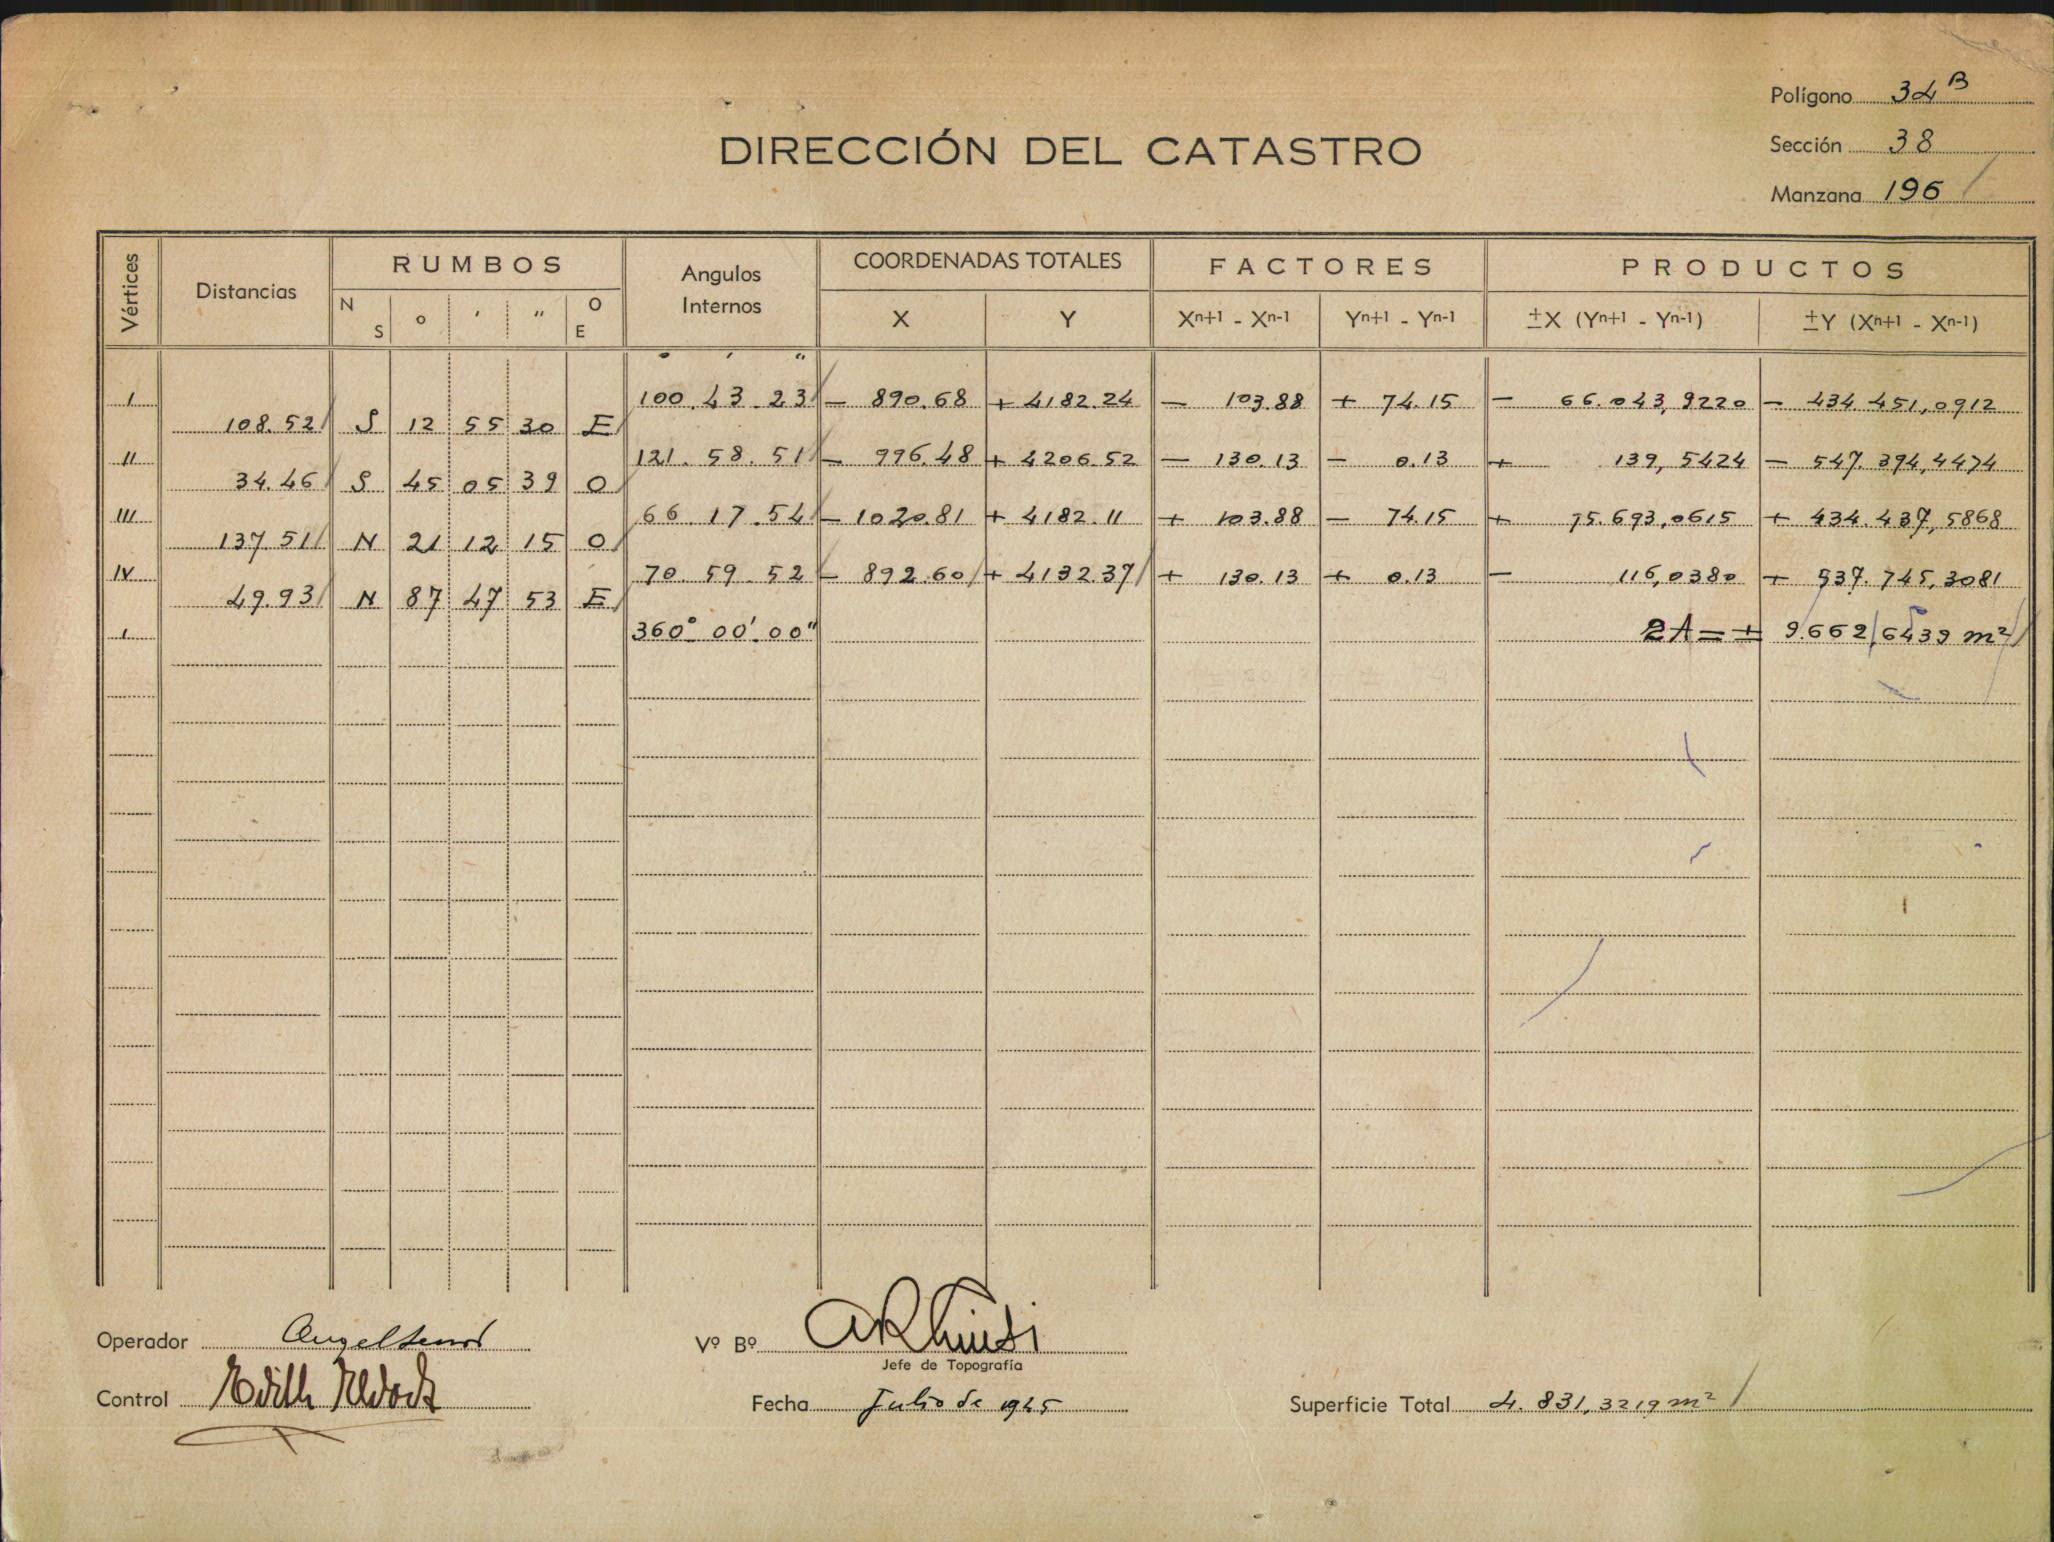 Polígono 34 B
DIRECCIÓN DEL CATASTRO
Sección 38
Manzana 196
Vértices Distancias RUMBOS Angulos Internos COORDENADAS TOTALES FACTORES PRODUCTOS
N S ° ' " O E X Y Xn+1 - Xn-1 Yn+1 - Yn-1 ±X (Yn+1 - Yn-1) ±Y (Xn+1 - Xn-1)
° ' "
I 100. 43. 23 - 890.68 + 4182.24 - 103.88 + 74.15 - 66.043,9220 - 434.451,0912
108.52 S 12 55 30 E
II 121. 58. 51 - 996.48 + 4206.52 - 130.13 - 0.13 + 139,5424 - 547.394,4474
34.46 S 45 05 39 O
III 66. 17. 54 - 1020.81 + 4182.11 + 103.88 - 74.15 + 75.693,0615 + 434.437,5868
137.51 N 21 12 15 O
IV 70. 59. 52 - 892.60 + 4132.37 + 130.13 + 0.13 - 116,0380 + 537.745,3081
49.93 N 87 47 53 E
I 360° 00'. 00" 2A = + 9.662,6439 m²
Operador
Vº Bº
Jefe de Topografía
Control Edith
Fecha Julio de 1945
Superficie Total 4.831,3219 m²